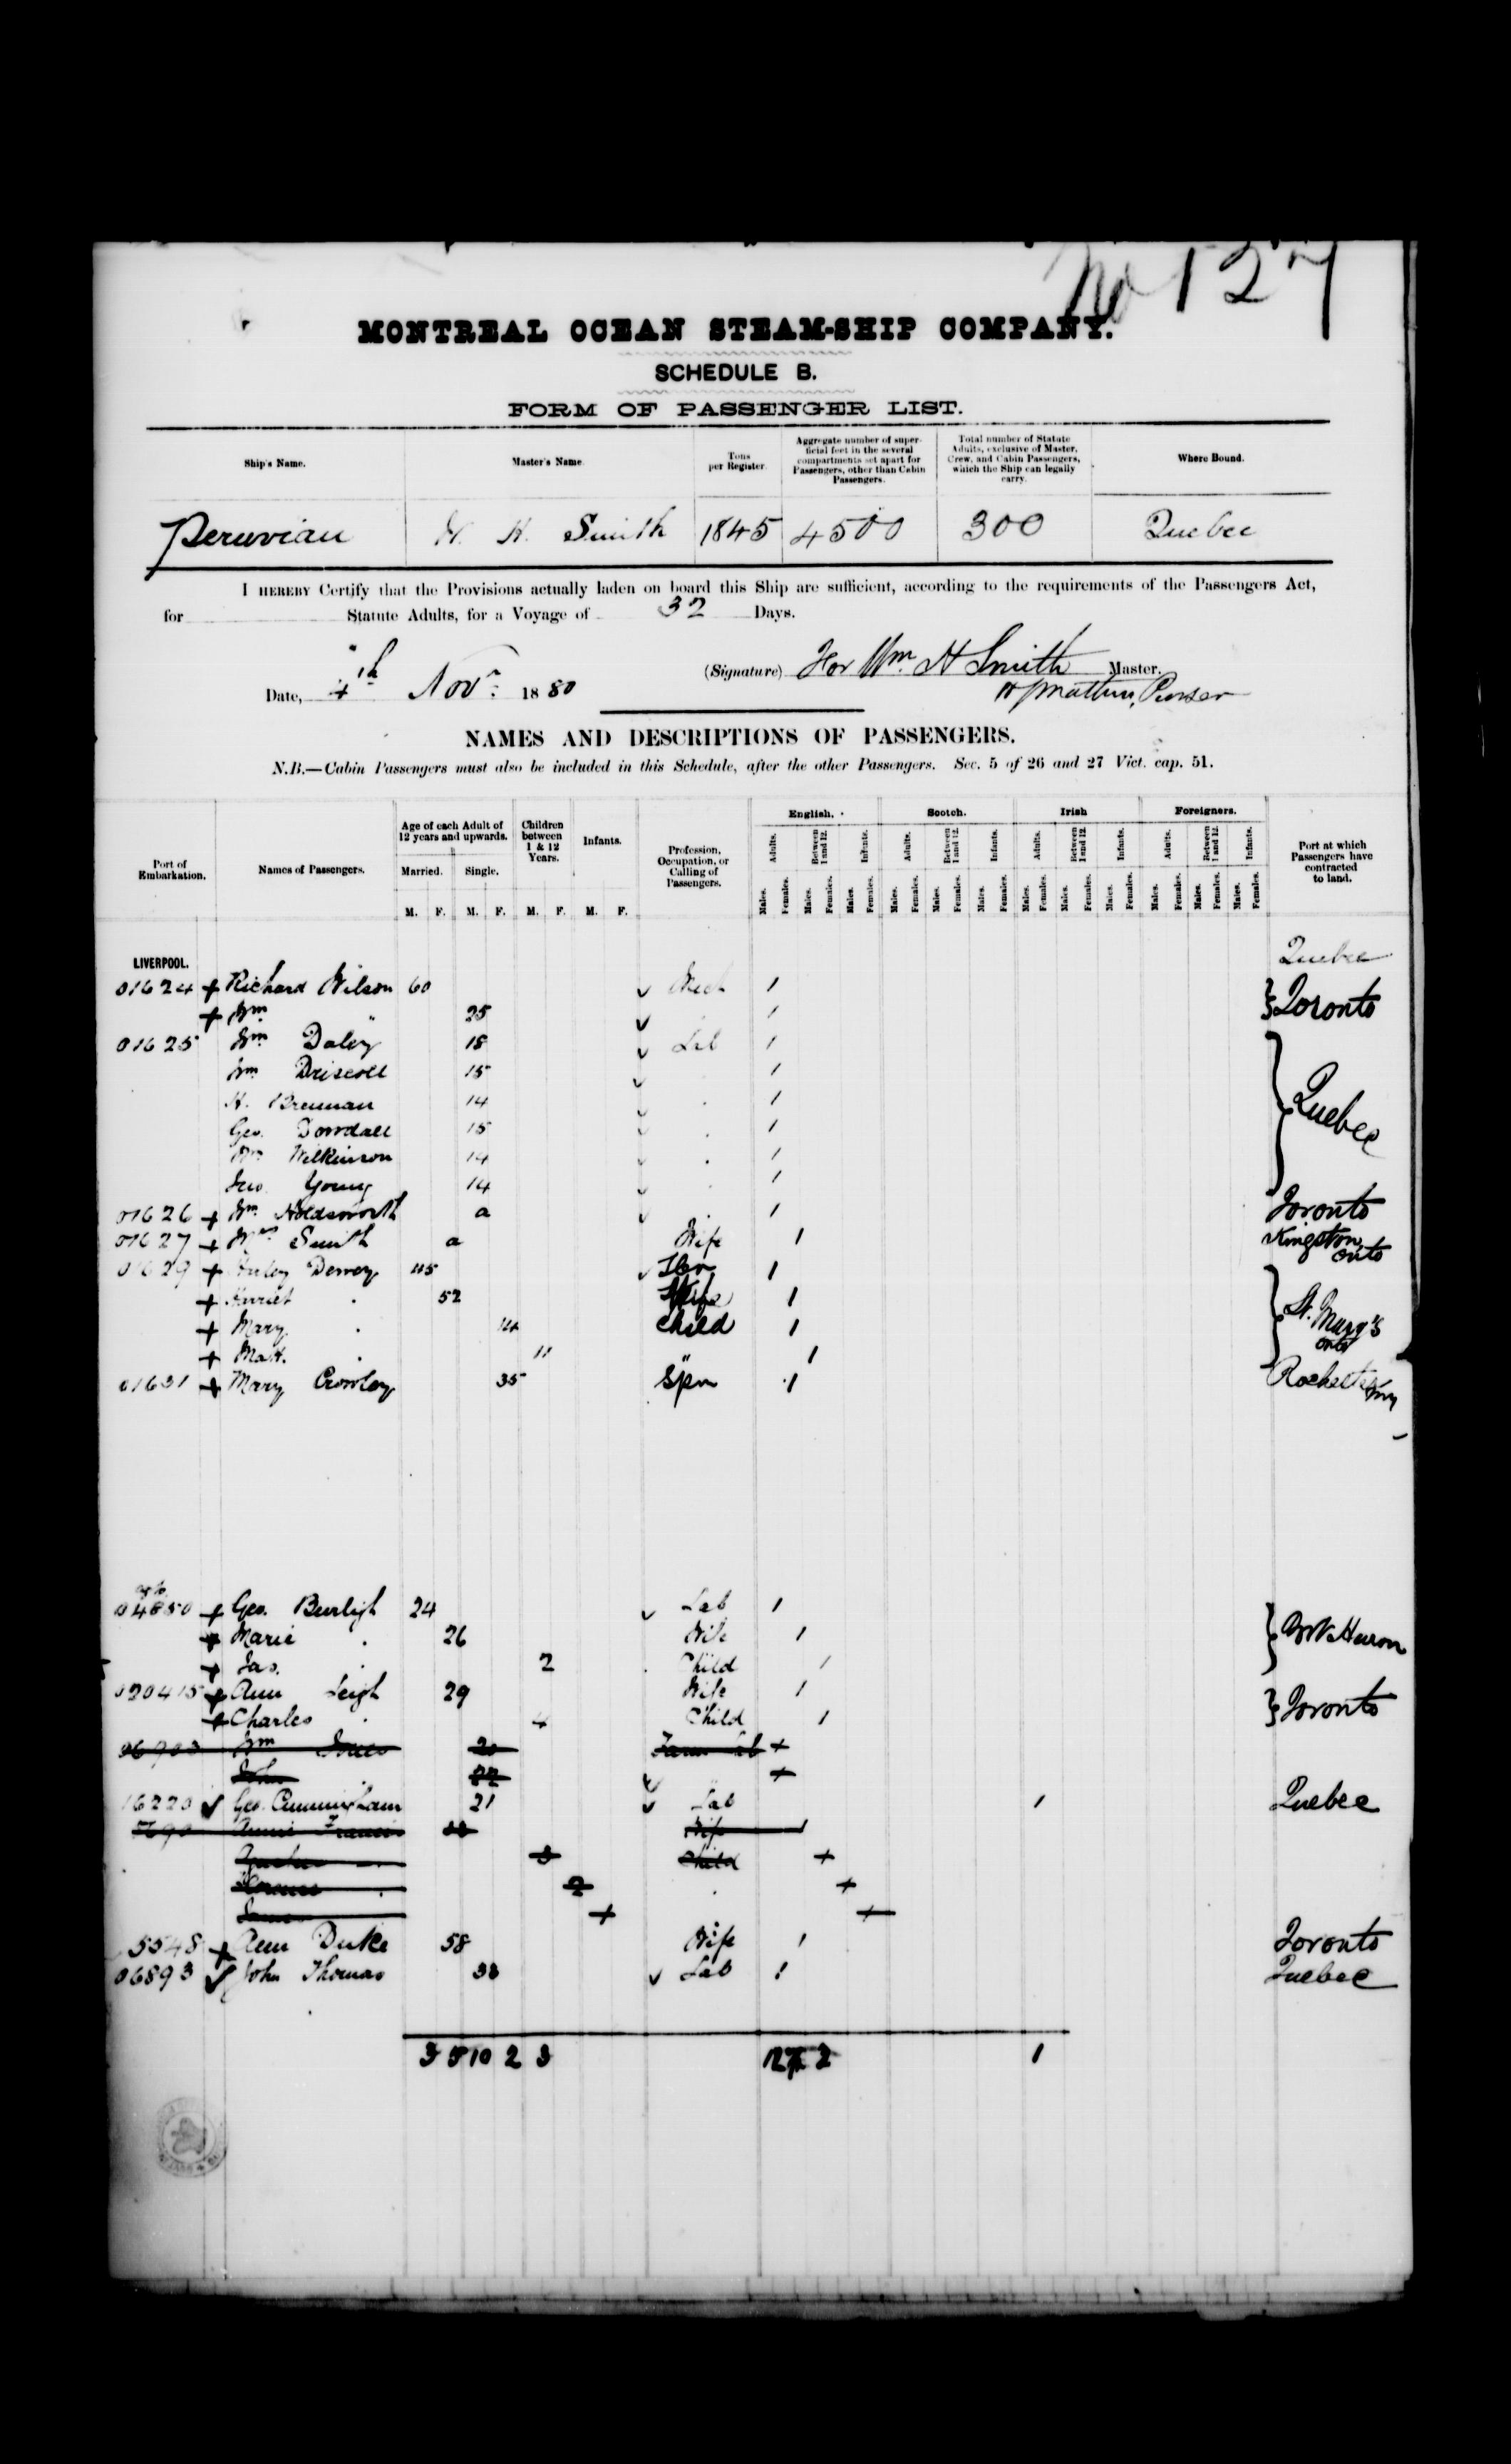 No 127
MONTREAL OCEAN STEAM-SHIP COMPANY.
SCHEDULE B.
FORM OF PASSENGER LIST.
Ship's Name. Master's Name. Tons per Register. Aggregate number of superficial feet in the several compartments set apart for Passengers, other than Cabin Passengers. Total number of Statute Adults, exclusive of Master, Crew, and Cabin Passengers, which the Ship can legally carry. Where Bound.
Peruvian W. H. Smith 1845 4500 300 Quebec
I HEREBY Certify that the Provisions actually laden on board this Ship are sufficient, according to the requirements of the Passengers Act,
for Statute Adults, for a Voyage of 32 Days.
Date, 4th Novr. 1880 (Signature) For Wm. H Smith Master.
Purser
NAMES AND DESCRIPTIONS OF PASSENGERS.
N.B.—Cabin Passengers must also be included in this Schedule, after the other Passengers. Sec. 5 of 26 and 27 Vict. cap. 51.
Port of Embarkation. Names of Passengers. Age of each Adult of 12 years and upwards. Children between 1 & 12 Years. Infants. Profession, Occupation, or Calling of Passengers. English. Scotch. Irish Foreigners. Port at which Passengers have contracted to land.
Adults. Between 1 and 12. Infants. Adults. Between 1 and 12. Infants. Adults. Between 1 and 12. Infants. Adults. Between 1 and 12. Infants.
Married. Single.
M. F. M. F. M. F. M. F. Males. Females. Males. Females. Males. Females. Males. Females. Males. Females. Males. Females. Males. Females. Males. Females. Males. Females. Males. Females. Males. Females. Males. Females.
LIVERPOOL. Quebec
01624 + Richard Wilson 60 ✓ Mech 1 } Toronto
+ Wm " 25 ✓ 1
01625 Wm Daley 18 ✓ Lab 1 } Quebec
Wm Driscoll 15 ✓ 1
H. Brennan 14 ✓ 1
Geo. Dowdall 15 ✓ 1
Wm Wilkinson 14 ✓ 1
Jno Young 14 ✓ 1
01626 + Wm Holdsworth a ✓ 1 Toronto
01627 + Mrs Smith a Wife 1 Kingston Onto
01629 + Dewey 45 ✓ 1 } St. Mary's Onto
+ Harriet 52 Wife 1
+ Mary 14 Child 1
+ 11 " 1
01631 + Mary Crowley 35 Spn 1 Rochester NY
04850 + Geo. Burligh 24 ✓ Lab 1 } Huron
+ Marie 26 Wife 1
+ Jas. 2 Child 1
020415 + Ann Leigh 29 Wife 1 } Toronto
+ Charles 4 Child 1
06903 Wm Jones 20 Farm Lab +
John 22 +
16220 ✓ Geo. Cunningham 21 ✓ Lab 1 Quebec
5690 Annie Francis Wife 1
3 Child +
2 +
+ +
5548 + Ann Duke 58 Wife 1 Toronto
06893 ✓ John Thomas 33 ✓ Lab 1 Quebec
3 5 10 2 3 12 7 2 1